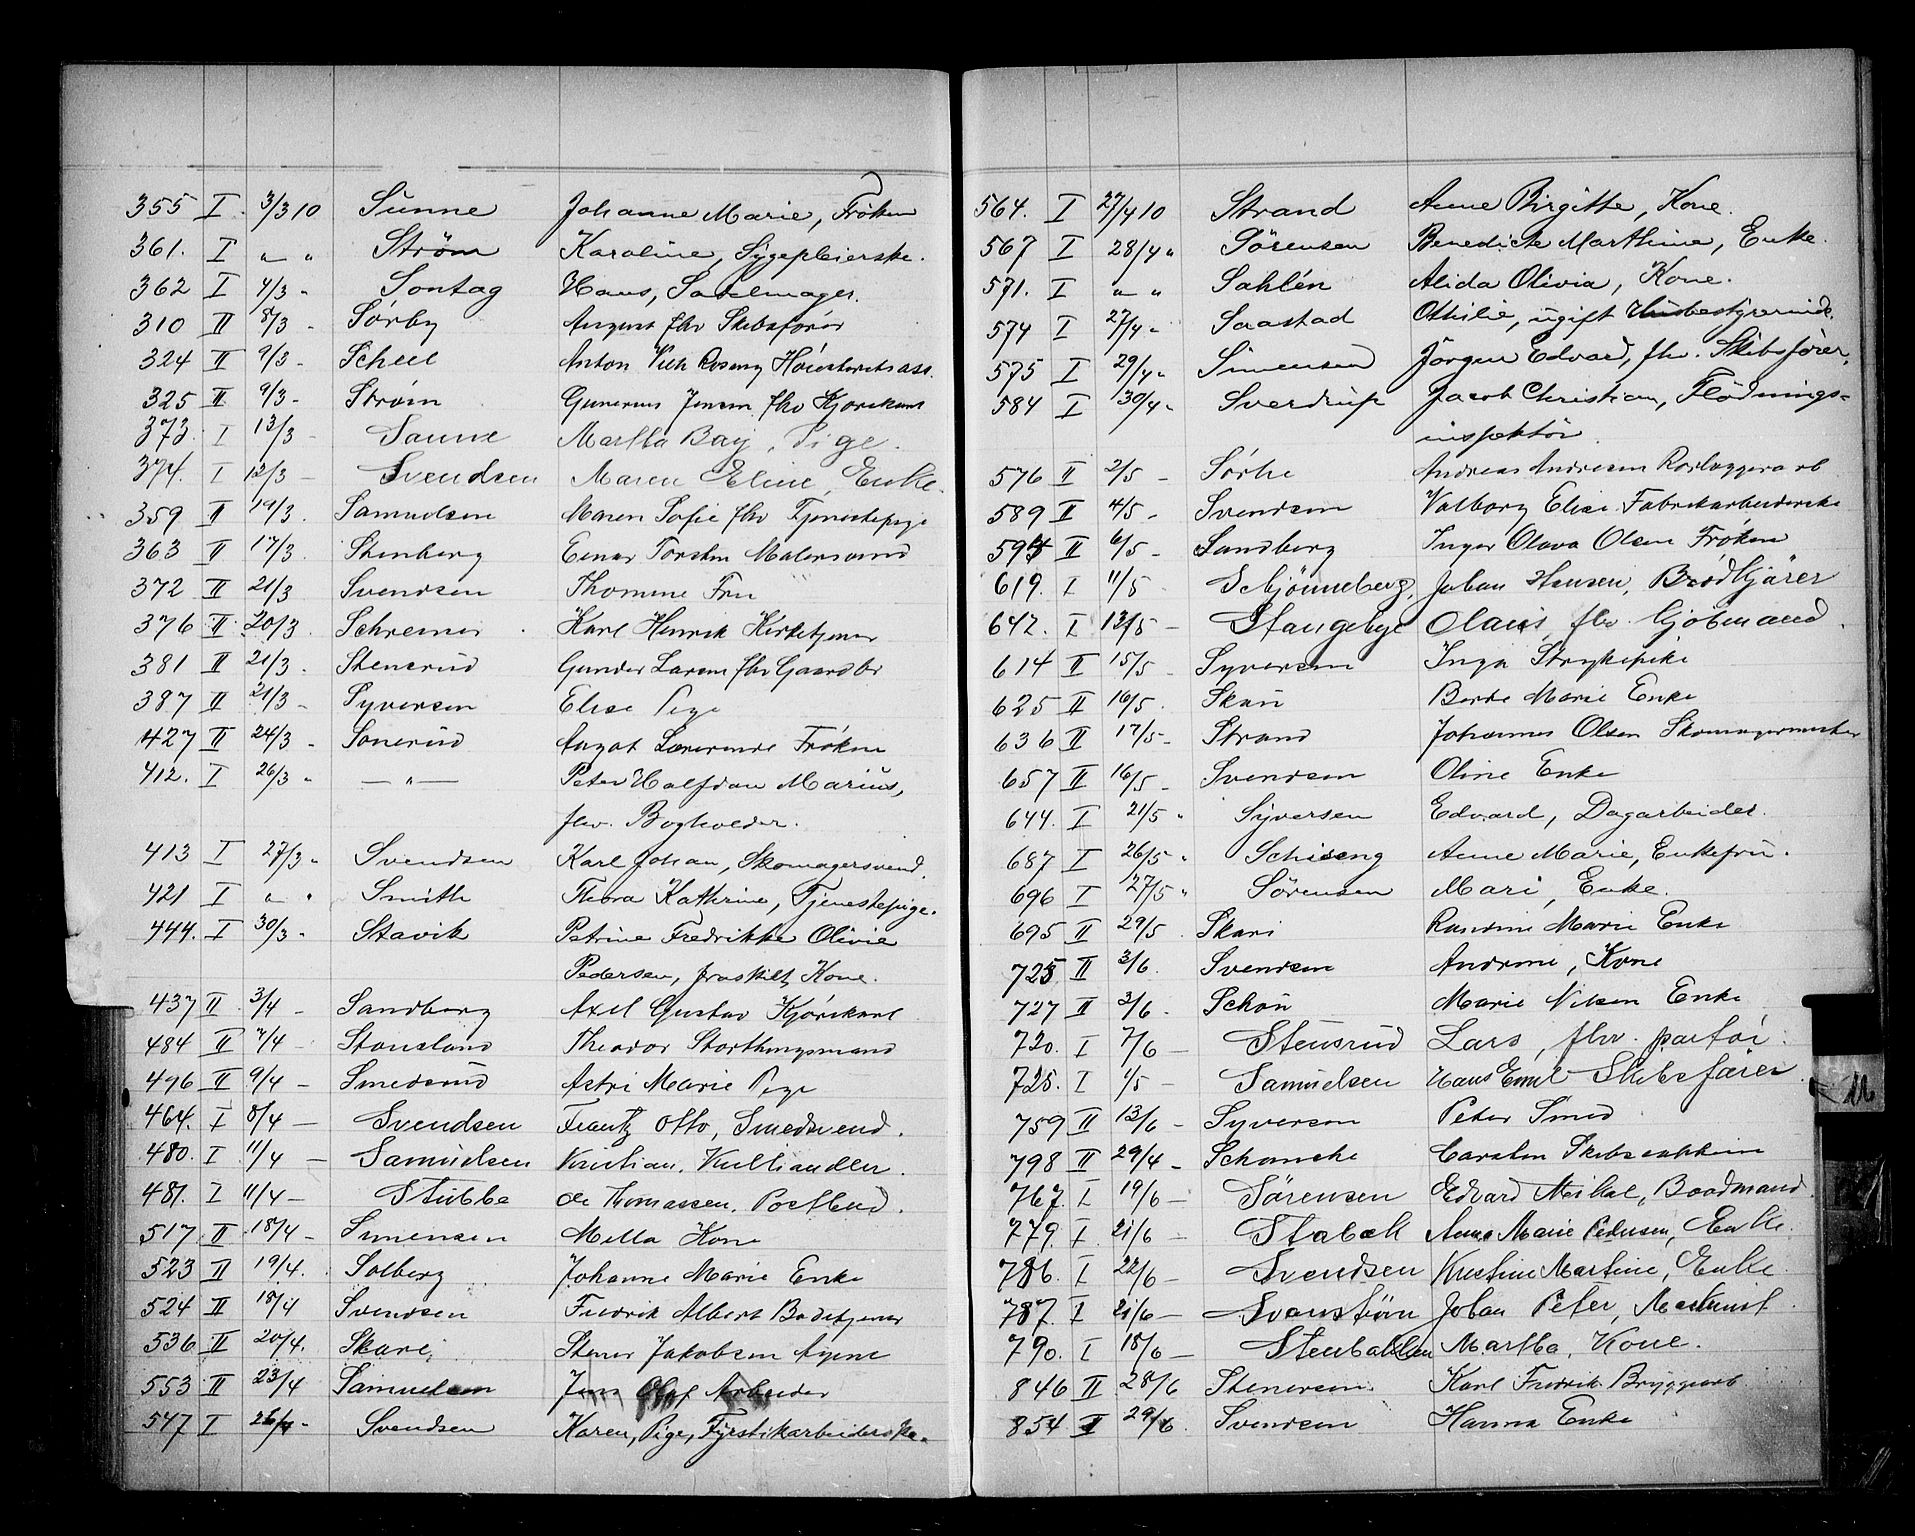 355 I 3/3 10 Sunne Johanne Marie, Frøken
361. I " " Strøm Karoline, Sygepleierske.
362 I 4/3 " Sontag Hans, Sadelmager.
310 II 8/3 - Sørby August fhv Skibsfører
324 II 9/3 - Scheel Anton Vilh Rosing Høiesteretsass.
325 II 9/3 - Strøm Gunerius Jensen fhv Kjørekarl
373. I 13/3 - Sanne Martha Bay, Pige.
374. I 12/3 - Svendsen Maren Eline, Enke.
359 II 19/3. Samuelsen Maren Sofie fhv Tjenestepige
363 II 17/3. Stenberg Einar Torsten Malersvend
372 II 21/3 Svendsen Thomine Fru
376 II 20/3. Schreiner Karl Henrik Kirketjener
381 II 21/3. Stensrud Gunder Larsen fhv Gaardbr
387 II 21/3 - Syversen Elise Pige
427 II 24/3 - Sonerud Aagot Lærerinde Frøken
412. I 26/3 " — " — Peter Halfdan Marius,
fhv. Bogholder.
413 I 27/3 " Svendsen Karl Johan, Skomagersvend.
421 I " " Smith Thora Kathrine, Tjenestepige.
444. I 30/3 - Stavik Petrine Fredrikke Olivie
Pedersen, fraskilt Kone.
437 II 3/4 - Sandberg Axel Gustav Kjørekarl
484 II 7/4 - Stousland Theodor Storthingsmand
496 II 9/4 - Smedsrud Astri Marie Pige
464. I 8/4 - Svendsen Frantz Otto, Smedsvend.
480. I 11/4 - Samuelsen Kristian, Kulhandler.
481. I 11/4 - Stubbe Ole Thomassen, Postbud.
517 II 18/4 - Simensen Milla Kone
523 II 19/4. Solberg Johanne Marie Enke
524 II 18/4 Svendsen Fredrik Albert Badetjener
536 II 20/4. Skari Stener Jakobsen
553 II 23/4 Samuelsen Jens Olaf Arbeider
547 I 26/4 - Svendsen Karen, Pige, Fyrstikarbeiderske.
564. I 27/4 10 Strand Anne Birgitte, Kone.
567 I 28/4 " Sørensen Benedicte Marthine, Enke.
571. I " " Sahlén Alida Olivia, Kone.
574 I 27/4 " Saastad Othilie, ugift Husbestyrerinde.
575 I 29/4 " Simensen Jørgen Edvard, fhv. Skibsfører.
584 I 30/4 " Sverdrup Jacob Christian, Flødnings-
inspektør.
576 II 2/5 - Sørlie Andreas Andresen Rorlæggerarb
589 II 4/5 - Svendsen Valborg Elise Fabrikarbeiderske
594 II 6/5 - Sandberg Inger Olava Olsen Frøken
619. I 11/5 Schjønneberg, Johan Hansen, Brødkjører
642. I 13/5 - Stangebye Olaus, fhv. Kjøbmand.
614 II 15/5 - Syversen Inga Strykepike
625 II 16/5. Skau Berte Marie Enke
636 II 17/5 - Strand Johannes Olsen Skomagermester
657 II 16/5 - Svendsen Oline Enke
644. I 21/5 " Syversen Edvard, Dagarbeider.
687 I 26/5 " Schiseng Anne Marie, Enkefru.
696 I 27/5 " Sørensen Mari, Enke.
695 II 29/5. Skari Randine Marie Enke
725 II 3/6. Svendsen Andrine, Kone
727 II 3/6. Schou Marie Nilsen Enke
720. I 7/6 - Stensrud Lars, fhv. partør.
725. I 1/5 - Samuelsen Hans Emil Skibsfører
759 II 13/6 - Syversen Peter Smed
798 II 29/4 - Schancke Carsten Skibskaptein
767. I 19/6 - Sørensen Edvard Mikal, Baadmand.
779. I 21/6 - Stabæk Anne Marie Pedersen, Enke.
786. I 22/6 - Svendsen Kristine Martine, Enke.
787. I 21/6 - Svanstrøm Johan Peter, Maskinist.
790. I 18/6 - Stenbakken Martha, Kone.
846 II 28/6 Stenersen Karl Fredrik Bryggearb
854 I 29/6. Svendsen Hanna Enke